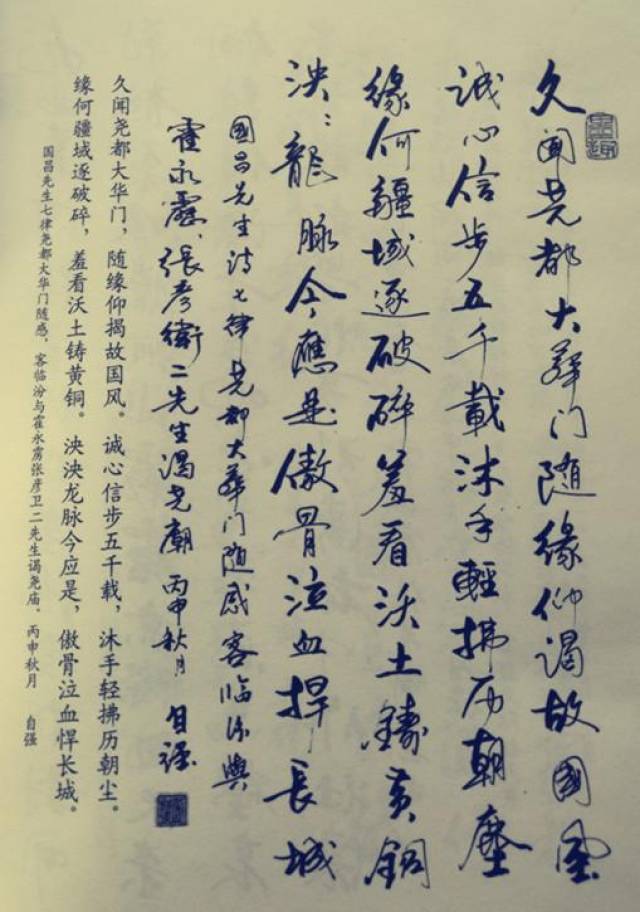 久闻尧都大华门随缘仰谒故國風
诚心信步五千載沐手輕拂历朝塵
緣何疆域逐破碎羞看沃土鑄黄銅
泱:龍脉今應是傲骨泣血捍長城
國昌先生诗七律尧都大華门随感客临汾與
霍永雳、張彦衛二先生謁尧廟 丙申秋月 自強
久闻尧都大华门，随缘仰揭故国风。 诚心信步五千载，沐手轻拂历朝尘。
缘何疆域逐破碎，羞看沃土铸黄铜。 泱泱龙脉今应是，傲骨泣血悍长城。
国昌先生七律尧都大华门随感，客临汾与霍永雳张彦卫二先生谒尧庙。 丙申秋月 自强